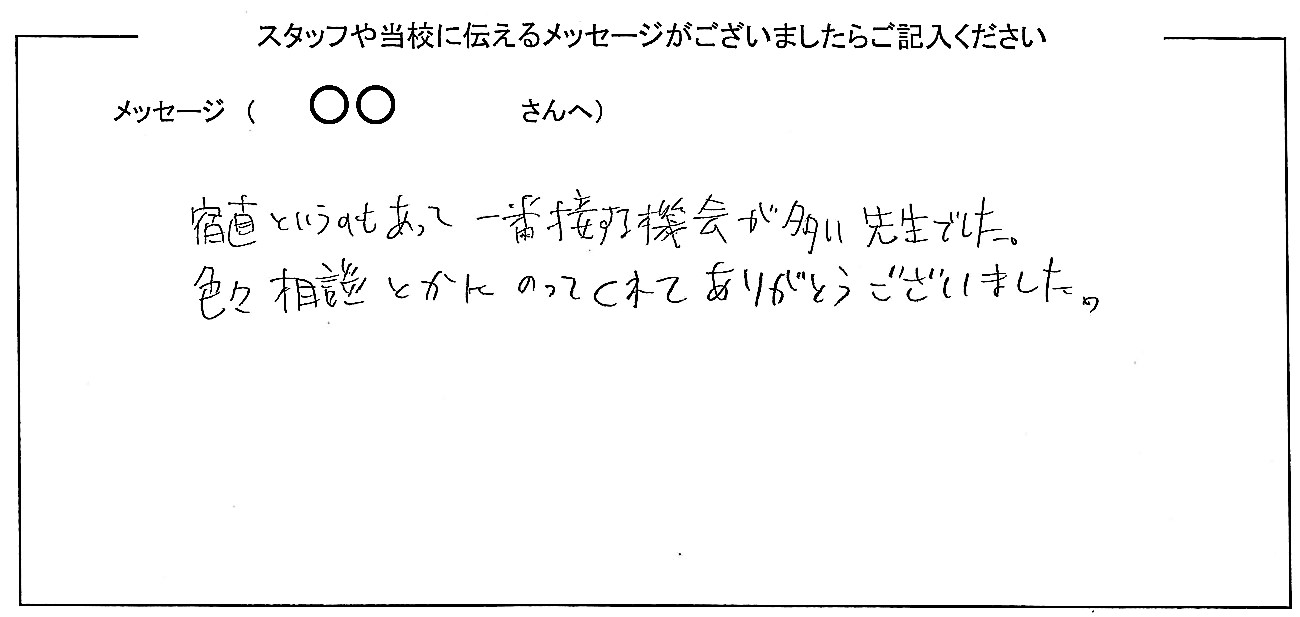 スタッフや当校に伝えるメッセージがございましたらご記入ください
メッセージ（　○○　さんへ）
宿直というのもあって一番接する機会が多い先生でした。
色々相談とかにのってくれてありがとうございました。